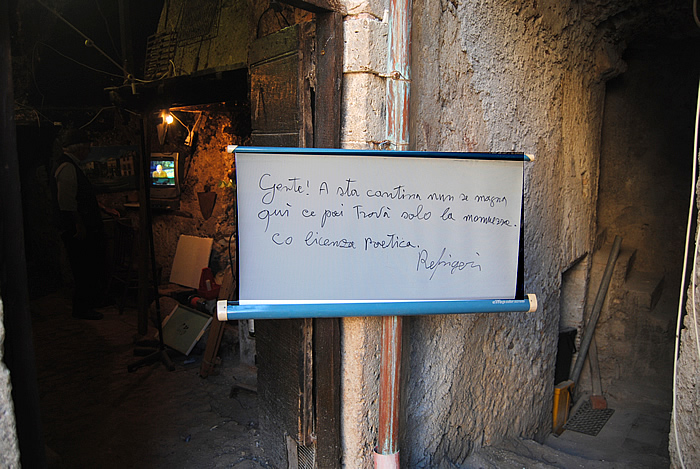 Gente! A sta cantina nun se magna
quì ce poi trovà solo la monnezza.
Co licenza poetica.
Refrigeri